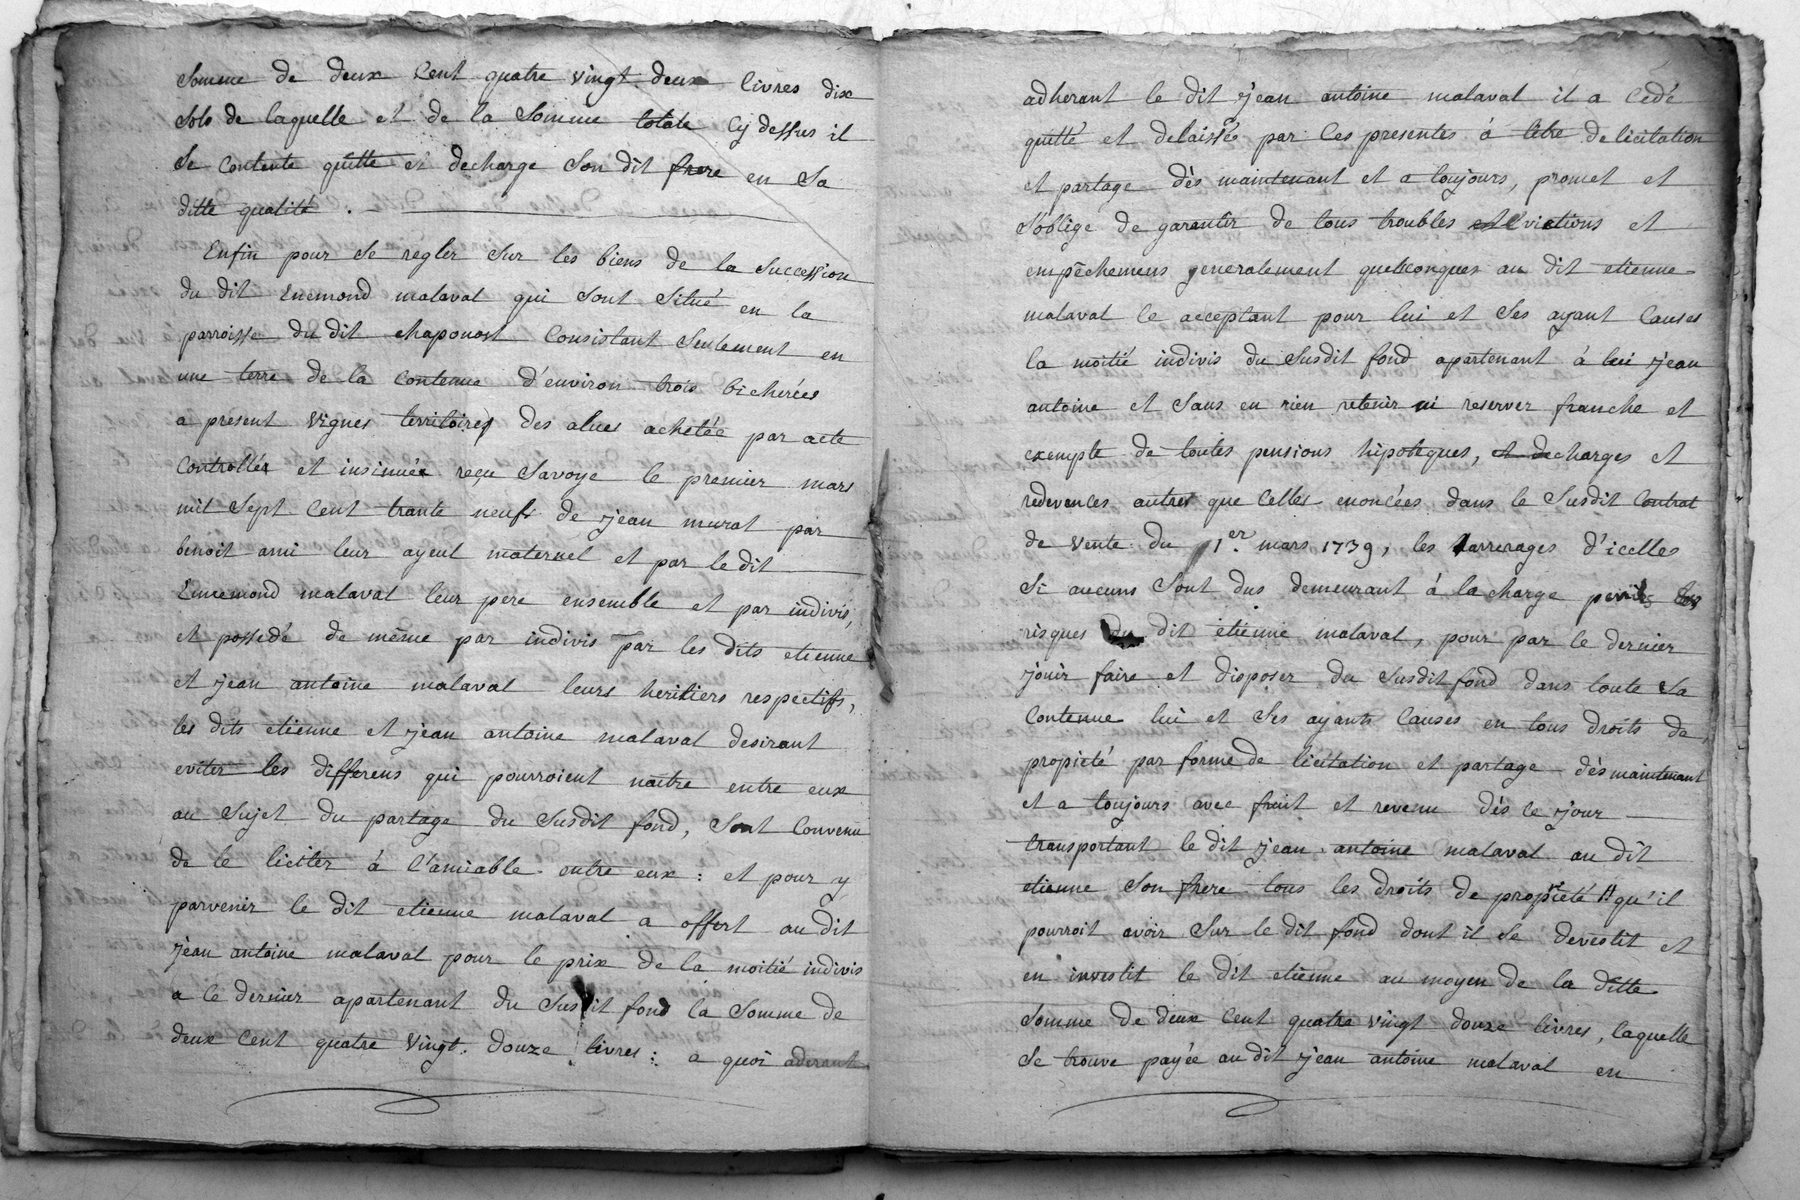 somme de deux cent quatre vingt deux livres dix
sols de laquelle et de la somme totale cy dessus il
se contente quitte et decharge son dit frere en sa
ditte qualité . —
Enfin pour se regler sur les biens de la succession
du dit Enemond malaval qui sont situé en la
parroisse du dit chaponost consistant seulement en
une terre de la contenue d'environ trois bicherées
a present vignes territoires des alues achetée par acte
controllée et insinuée reçu savoye le premier mars
mil sept cent trante neufs de jean murat par
benoit ami leur ayeul maternel et par le dit
Ennemond malaval leur pere ensemble et par indivis,
et possedé de même par indivis par les dits etienne
et jean antoine malaval leurs heritiers respectifs,
les dits etienne et jean antoine malaval desirant
eviter les differens qui pourroient naitre entre eux
au sujet du partage du susdit fond, sont convenu
de le liciter à l'amiable entre eux : et pour y
parvenir le dit etienne malaval a offert au dit
jean antoine malaval pour le prix de la moitié indivis
a ce dernier apartenant du susdit fond la somme de
deux cent quatre vingt douze livres : a quoi aderant
adherant le dit jean antoine malaval il a cedé
quitté et delaissé par ces presentes à titre de licitation
et partage dès maintenant et a toujours, promet et
s'oblige de garantir de tous troubles evictions et
empêchemens generalement quelconques au dit etienne
malaval ce acceptant pour lui et ses ayant causes
la moitié indivis du susdit fond apartenant à lui jean
antoine et sans en rien retenir ni reserver franche et
exempte de toutes pensions hipoteques, et decharges et
redevences autres que celles enoncées dans le susdit contrat
de vente du 1er. mars 1739, les arrerages d'icelles
si aucuns sont dus demeurant à la charge perils
risques du dit etienne malaval, pour par le dernier
jouir faire et disposer du susdit fond dans toute sa
contenue lui et ses ayants causes en tous droits de
propieté par forme de licitation et partage dès maintenant
et a toujours avec fruit et revenu dés ce jour —
transportant le dit jean antoine malaval au dit
etienne son frere tous les droits de propieté qu'il
pourroit avoir sur le dit fond dont il se devestit et
en investit le dit etienne au moyen de la ditte
somme de deux cent quatre vingt douze livres, laquelle
se trouve payée au dit jean antoine malaval en